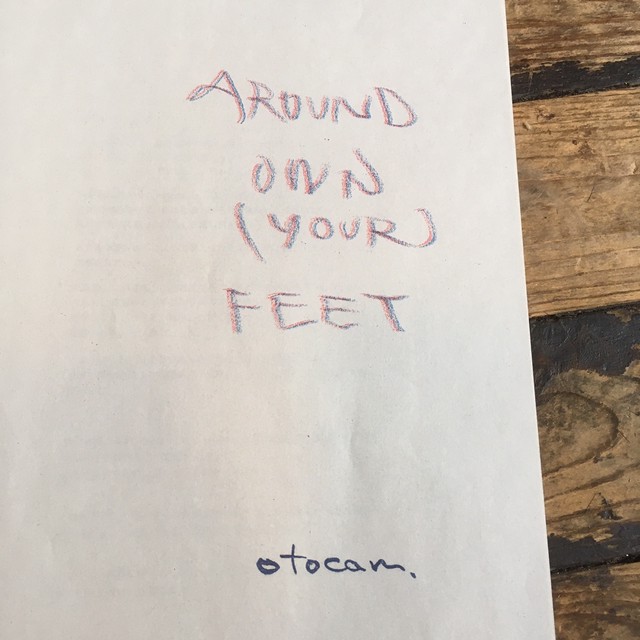 AROUND
OWN
(YOUR)
FEET
otocam.